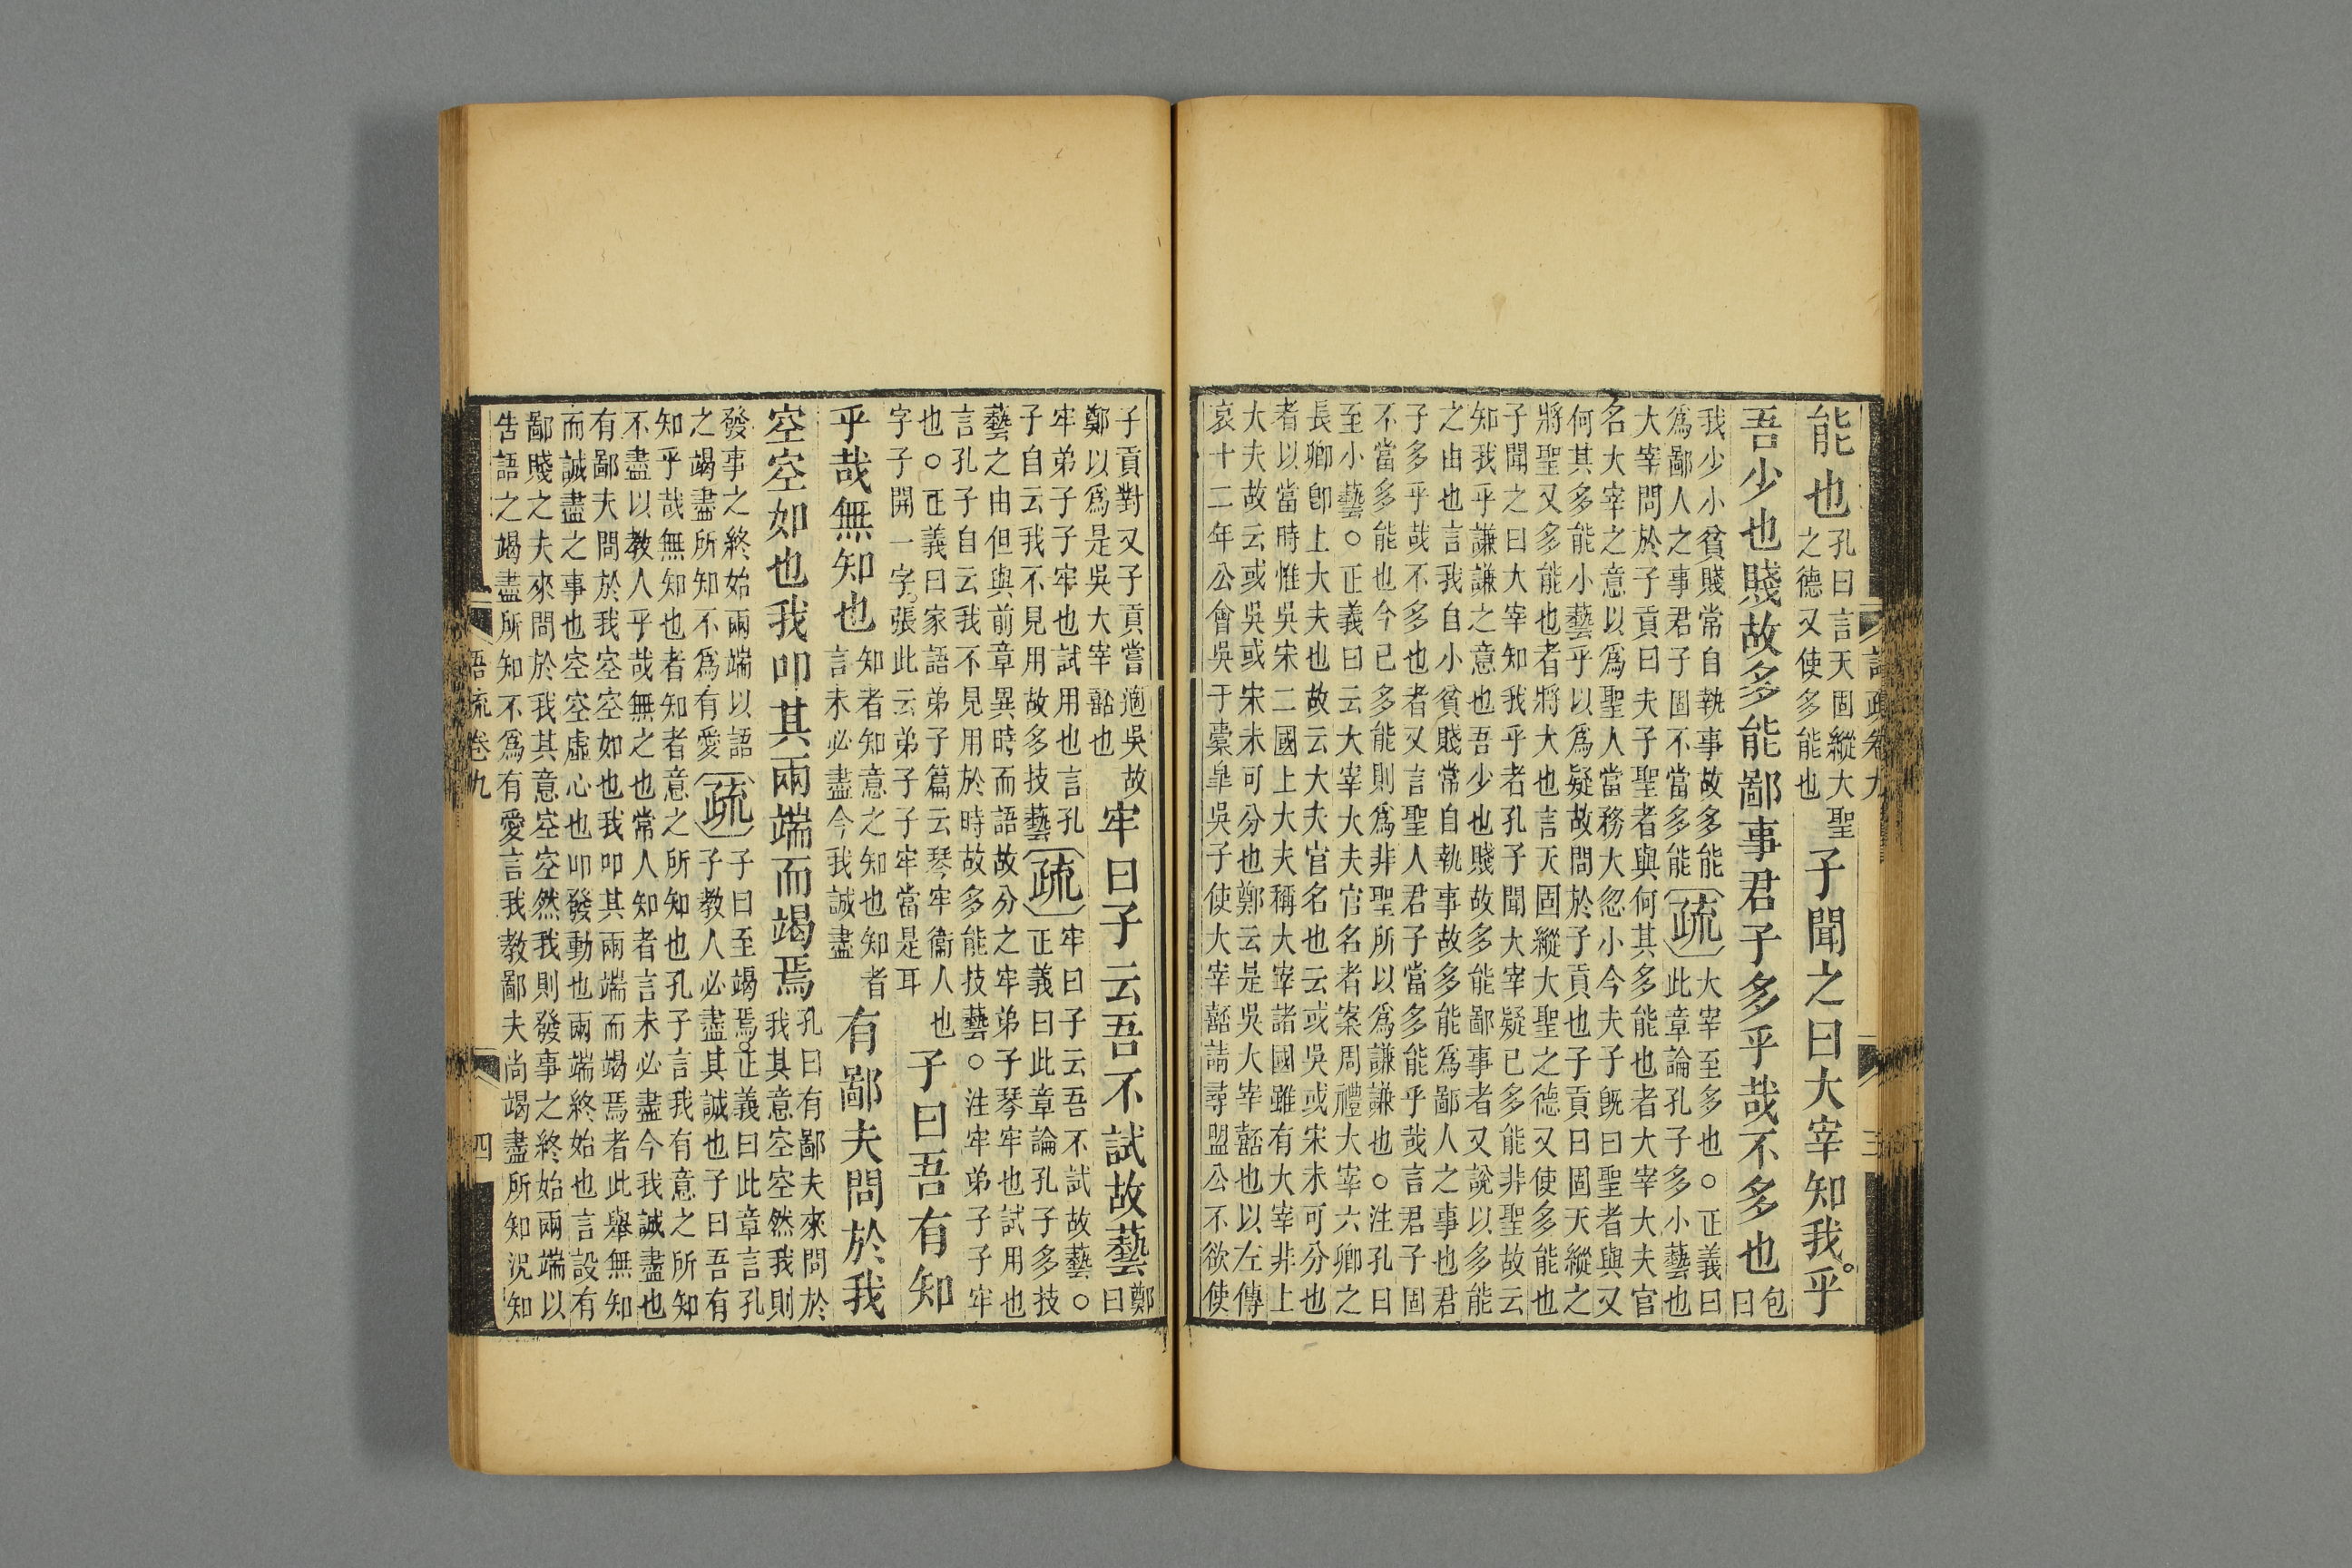 語疏卷九 三
能也
孔曰言天固縱大聖
之德又使多能也
子聞之曰大宰知我乎
吾少也賤故多能鄙事君子多乎哉不多也
包
曰
我少小貧賤常自執事故多能
爲鄙人之事君子固不當多能
疏
大宰至多也○正義曰
此章論孔子多小藝也
大宰問於子貢曰夫子聖者與何其多能也者大宰大夫官
名大宰之意以爲聖人當務大忽小今夫子旣曰聖者與又
何其多能小藝乎以爲疑故問於子貢也子貢曰固天縱之
將聖又多能也者將大也言天固縱大聖之德又使多能也
子聞之曰大宰知我乎者孔子聞大宰疑已多能非聖故云
知我乎謙謙之意也吾少也賤故多能鄙事者又說以多能
之由也言我自小貧賤常自執事故多能爲鄙人之事也君
子多乎哉不多也者又言聖人君子當多能乎哉言君子固
不當多能也今已多能則爲非聖所以爲謙謙也○注孔曰
至小藝○正義曰云大宰大夫官名者案周禮大宰六卿之
長卿卽上大夫也故云大夫官名也云或吳或宋未可分也
者以當時惟吳宋二國上大夫稱大宰諸國雖有大宰非上
大夫故云或吳或宋未可分也鄭云是吳大宰嚭也以左傳
哀十二年公會吳于橐皐吳子使大宰嚭請尋盟公不欲使
子貢對又子貢嘗適吳故
鄭以爲是吳大宰嚭也
牢曰子云吾不試故藝
鄭
曰
牢弟子子牢也試用也言孔
子自云我不見用故多技藝
疏
牢曰子云吾不試故藝○
正義曰此章論孔子多技
藝之由但與前章異時而語故分之牢弟子琴牢也試用也
言孔子自云我不見用於時故多能技藝○注牢弟子子牢
也○正義曰家語弟子篇云琴牢衞人也
字子開一字張此云弟子子牢當是耳
子曰吾有知
乎哉無知也
知者知意之知也知者
言未必盡今我誠盡
有鄙夫問於我
空空如也我叩其兩端而竭焉
孔曰有鄙夫來問於
我其意空空然我則
發事之終始兩端以語
之竭盡所知不爲有愛
疏
子曰至竭焉○正義曰此章言孔
子教人必盡其誠也子曰吾有
知乎哉無知也者知者意之所知也孔子言我有意之所知
不盡以教人乎哉無之也常人知者言未必盡今我誠盡也
有鄙夫問於我空空如也我叩其兩端而竭焉者此舉無知
而誠盡之事也空空虛心也叩發動也兩端終始也言設有
鄙賤之夫來問於我其意空空然我則發事之終始兩端以
告語之竭盡所知不爲有愛言我教鄙夫尚竭盡所知況知
語疏卷九 四